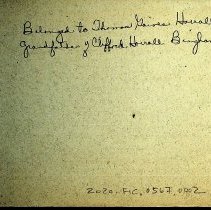 Belonged to Thomas Gaines Howall
Grandfather of Clifford Howall Bingha
2020.FIC.0567.0002